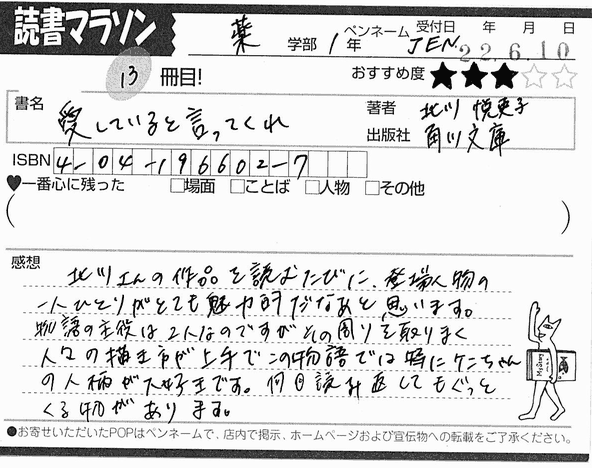 読書マラソン
薬 学部 1年 ペンネーム JEN 受付日 年 月 日 22.6.10
13 冊目! おすすめ度 ★★★☆☆
書名 愛していると言ってくれ 著者 北川 悦吏子
出版社 角川文庫
ISBN 4-04-196602-7
♥一番心に残った □場面 □ことば □人物 □その他
( )
感想
北川さんの作品を読むたびに、登場人物の
一人ひとりがとても魅力的だなあと思います。
物語の主役は2人なのですがその周りを取りまく
人々の描き方が上手でこの物語では特にケンちゃん
の人柄が大好きです。何回読み返してもぐっと
くる物があります。
Mystery
●お寄せいただいたPOPはペンネームで、店内で掲示、ホームページおよび宣伝物への転載をご了承ください。